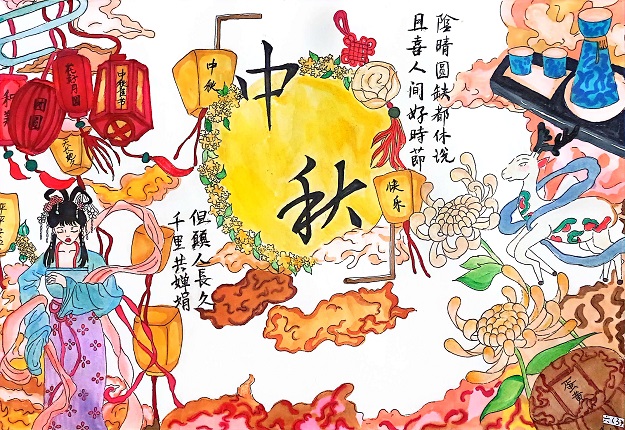 中秋
陰晴圓缺都休說
且喜人間好時節
但願人長久
千里共嬋娟
中秋
快乐
花好月圆
中秋佳节
团圆
和美
蛋黄